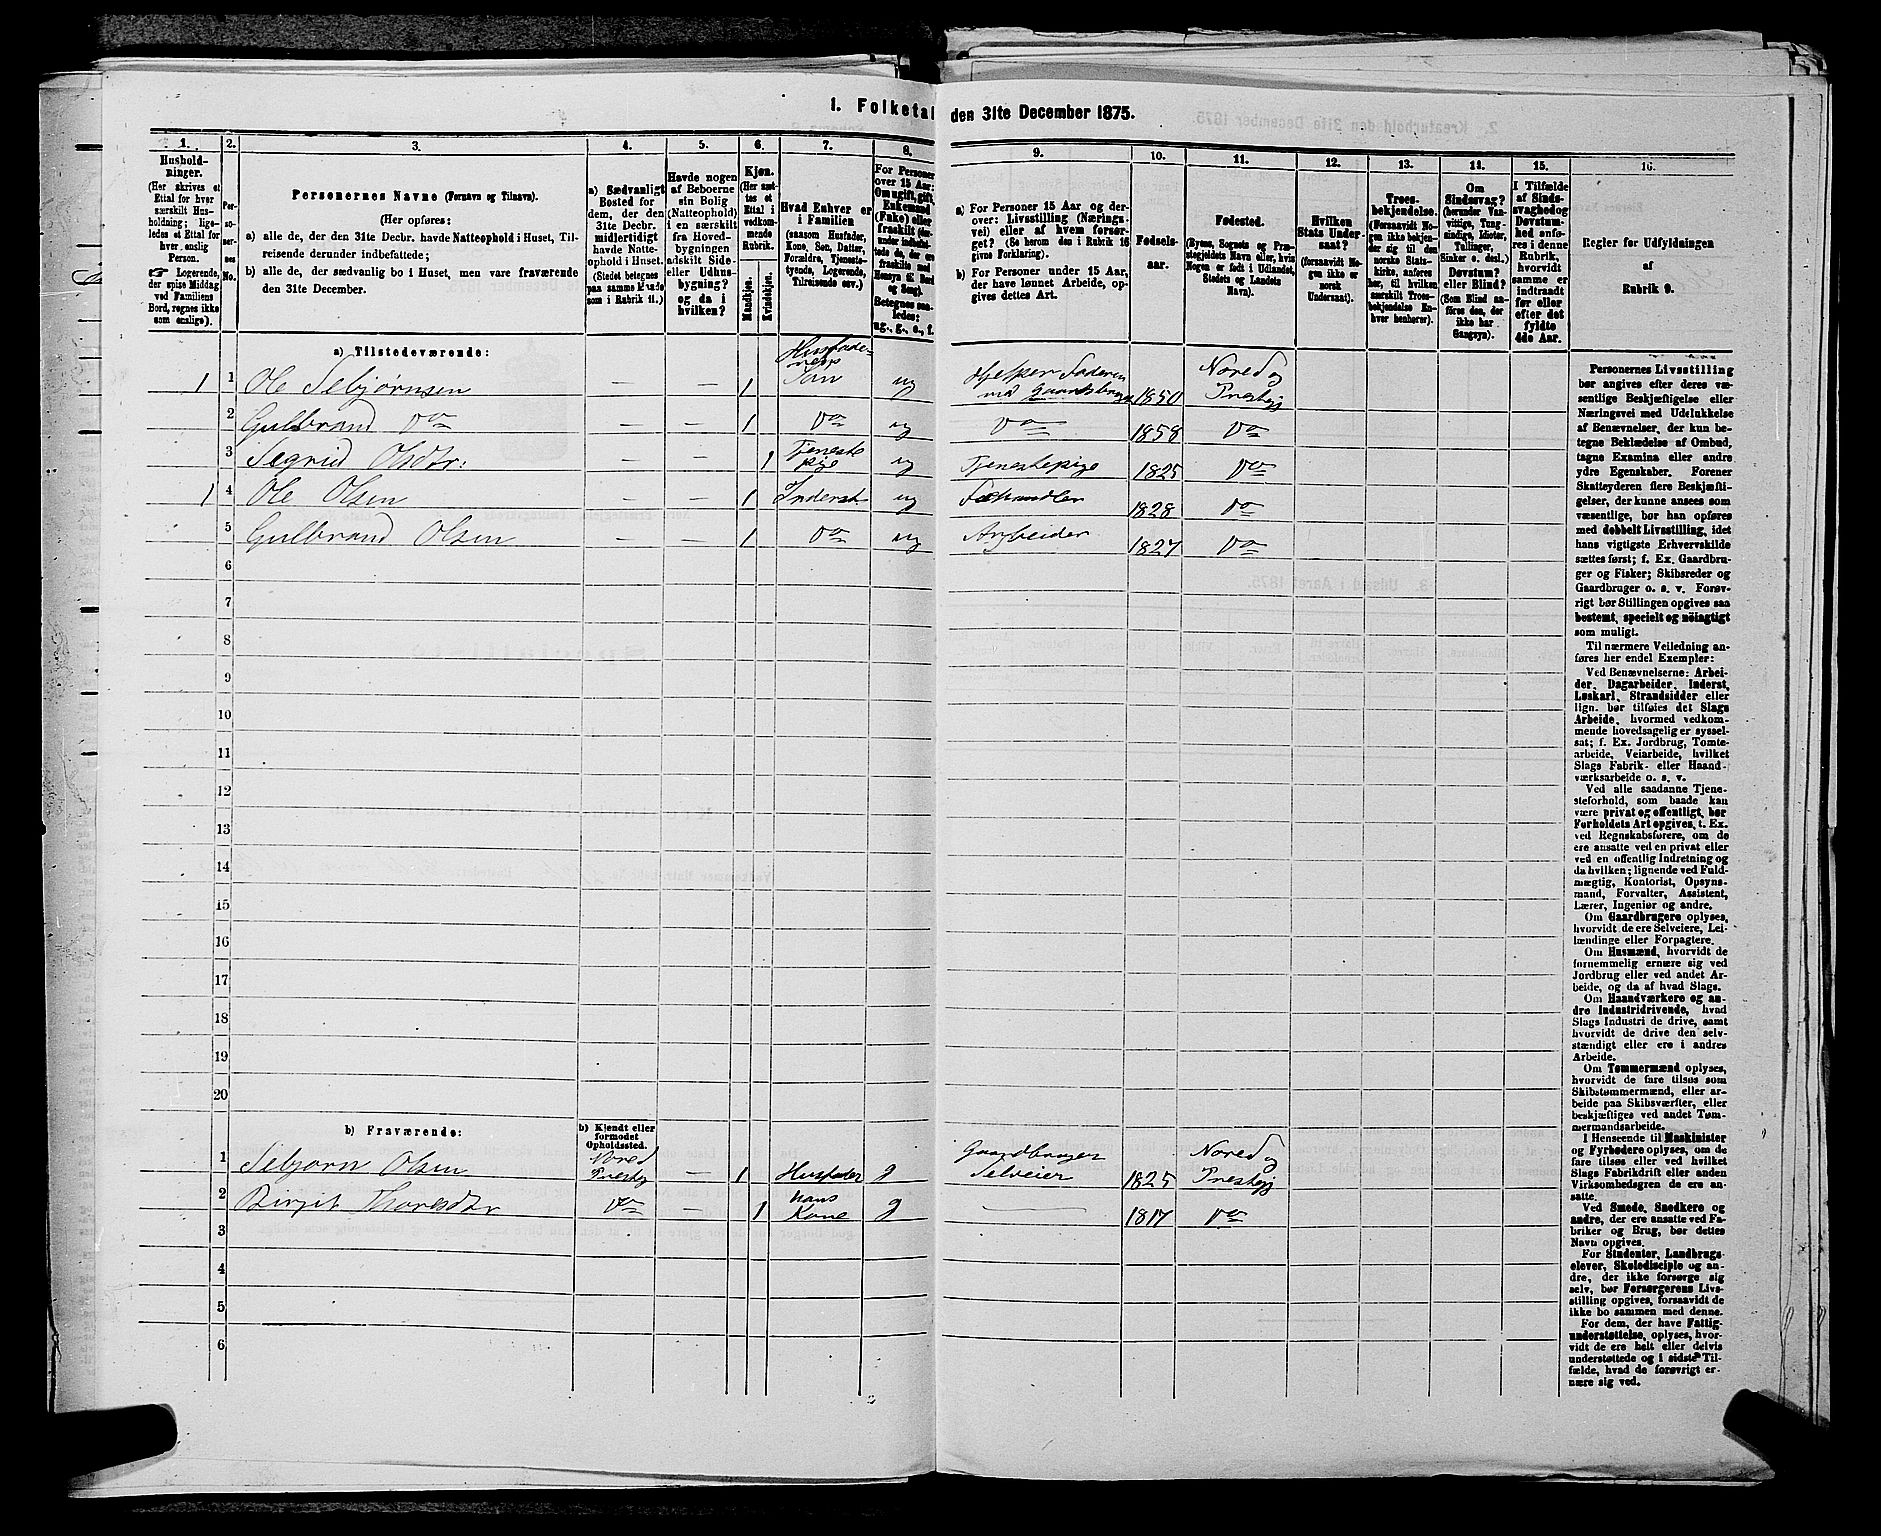 1. Folketal den 31te December 1875.
1. 2. 3. 4. 5. 6. 7. 8. 9. 10. 11. 12. 13. 14. 15. 16.
Hushold-
ninger.
(Her skrives et
Ettal for hver
særskilt Hus-
holdning; lige-
ledes et Ettal for
hver enslig
Person.
☞ Logerende,
der spise Middag
ved Familiens
Bord, regnes ikke
som enslige).
Per-
so-
ner-
nes
No.
Personernes Navne (Fornavn og Tilnavn).
(Her opføres:
a) alle de, der den 31te Decbr. havde Natteophold i Huset, Til-
reisende derunder indbefattede;
b) alle de, der sædvanlig bo i Huset, men vare fraværende
den 31te December.
a) Sædvanligt
Bosted for
dem, der den
31te Decbr.
midlertidigt
havde Natte-
ophold i Huset.
(Stedet betegnes
paa samme Maade
som i Rubrik 11.)
Havde nogen
af Beboerne
sin Bolig
(Natteophold)
i en særskilt
fra Hoved-
bygningen
adskilt Side-
eller Udhus-
bygning?
og da i
hvilken?
Kjøn.
(Her sæt-
tes et
Ettal i
vedkom-
mende
Rubrik.
Mandkjøn.
Kvindekjøn.
Hvad Enhver er
i Familien
(saasom Husfader,
Kone, Søn, Datter,
Forældre, Tjeneste-
tyende, Logerende,
Tilreisende osv.)
For Personer
over 15 Aar:
Om ugift, gift,
Enkemand
(Enke) eller
fraskilt
Betegnes saa-
ledes:
ug., g., e., f.
a) For Personer 15 Aar og der-
over: Livsstilling (Nærings-
vei) eller af hvem forsør-
get? (Se herom den i Rubrik 16
givne Forklaring).
b) For Personer under 15 Aar,
der have lønnet Arbeide, op-
gives dettes Art.
Fødsels-
aar.
Fødested.
(Byens, Sognets og Præ-
stegjeldets Navn eller, hvis
Nogen er født i Udlandet,
Stedets og Landets
Navn).
Hvilken
Stats Under-
saat?
(forsaavidt No-
gen ikke er
norsk
Undersaat).
Troes-
bekjendelse.
(Forsaavidt No-
gen ikke bekjen-
der sig til den
norske Stats-
kirke, anføres
her, til hvilken
særskilt Troes-
bekjendelse En-
hver henhører).
Om
Sindssvag?
(herunder Van-
vittige, Tung-
sindige, Idioter,
Tullinger,
Sinker o. desl.)
Døvstum?
eller Blind?
(Som Blind an-
føres den, der
ikke har
Gangsyn).
I Tilfælde
af Sinds-
svaghed og
Døvstum-
hed anfø-
res i denne
Rubrik,
hvorvidt
samme er
indtraadt
før eller
efter det
fyldte
4de Aar.
Regler for Udfyldningen
af
Rubrik 9.
a) Tilstedeværende:
1 1 Ole Sebjørnsen — — 1 Husfade-
rens
Søn ug Hjelper Faderen
med Gaardsbruget 1850 Nored og
Prestegj
2 Gulbrand Do — — 1 Do ug Do 1858 Do
3 Segrid Olsdtr: — — 1 Tjeneste
pige ug Tjenestepige 1825 Do
1 4 Ole Olsen — — 1 Inderst ug Fæhandler 1828 Do
5 Gulbrand Olsen — — 1 Do ug Arbeider 1827 Do
6
7
8
9
10
11
12
13
14
15
16
17
18
19
20
b) Fraværende:
b) Kjendt eller
formodet
Opholdssted.
1 Sebjørn Olsen Nored
Prestegj — 1 Husfader g Gaardbruger
Selveier 1825 Nored og
Prestegj
2 Birgit Thoresdtr Do — 1 hans
Kone g — 1817 Do
3
4
5
6
Personernes Livsstilling
bør angives efter deres væ-
sentlige Beskjæftigelse eller
Næringsvei med Udelukkelse
af Benævnelser, der kun be-
tegne Beklædelse af Ombud,
tagne Examina eller andre
ydre Egenskaber. Forener
Skatteyderen flere Beskjæfti-
gelser, der kunne ansees som
væsentlige, bør han opføres
med dobbelt Livsstilling, idet
hans vigtigste Erhvervskilde
sættes først; f. Ex. Gaardbru-
ger og Fisker; Skibsreder og
Gaardbruger o. s. v. Forøv-
rigt bør Stillingen opgives saa
bestemt, specielt og nøiagtigt
som muligt.
Til nærmere Veiledning an-
føres her endel Exempler:
Ved Benævnelserne: Arbei-
der, Dagarbeider, Inderst,
Løskarl, Strandsidder eller
lign. bør tilføies det Slags
Arbeide, hvormed vedkom-
mende hovedsagelig er syssel-
sat; f. Ex. Jordbrug, Tomte-
arbeide, Veiarbeide, hvilket
Slags Fabrik- eller Haand-
værksarbeide o. s. v.
Ved alle saadanne Tjene-
steforhold, som baade kan
være privat og offentligt, bør
Forholdets Art opgives, t. Ex.
ved Regnskabsførere, om de
ere ansatte ved en privat eller
ved en offentlig Indretning og
da hvilken; lignende ved Fuld-
mægtig, Kontorist, Opsyns-
mand, Forvalter, Assistent,
Lærer, Ingeniør og andre.
Om Gaardbrugere oplyses,
hvorvidt de ere Selveiere, Lei-
lændinge eller Forpagtere.
Om Husmænd, hvorvidt de
fornemmelig ernære sig ved
Jordbrug eller ved andet Ar-
beide, og da af hvad Slags.
Om Haandværkere og an-
dre Industridrivende, hvad
Slags Industri de drive, samt
hvorvidt de drive den selv-
stændigt eller ere i andres
Arbeide.
Om Tømmermænd oplyses,
hvorvidt de fare tilsøs som
Skibstømmermænd, eller ar-
beide paa Skibsværfter, eller
beskjæftiges ved andet Tøm-
mermandsarbeide.
I Henseende til Maskinister
og Fyrbødere oplyses, om de
fare tilsøs eller ved hvilket
Slags Fabrikdrift eller anden
Virksomhedsgren de ere an-
satte.
Ved Smede, Snedkere og
andre, der ere ansatte ved Fa-
briker og Brug, bør dettes
Navn opgives.
For Studenter, Landbrugs-
elever, Skoledisciple og an-
dre, der ikke forsørge sig
selv, bør Forsørgerens Livs-
stilling opgives, forsaavidt de
ikke bo sammen med denne.
For dem, der have Fattig-
understøttelse, oplyses, hvor-
vidt de ere helt eller delvis
understøttede og i sidste Til-
fælde, hvad de forøvrigt er-
nære sig ved.